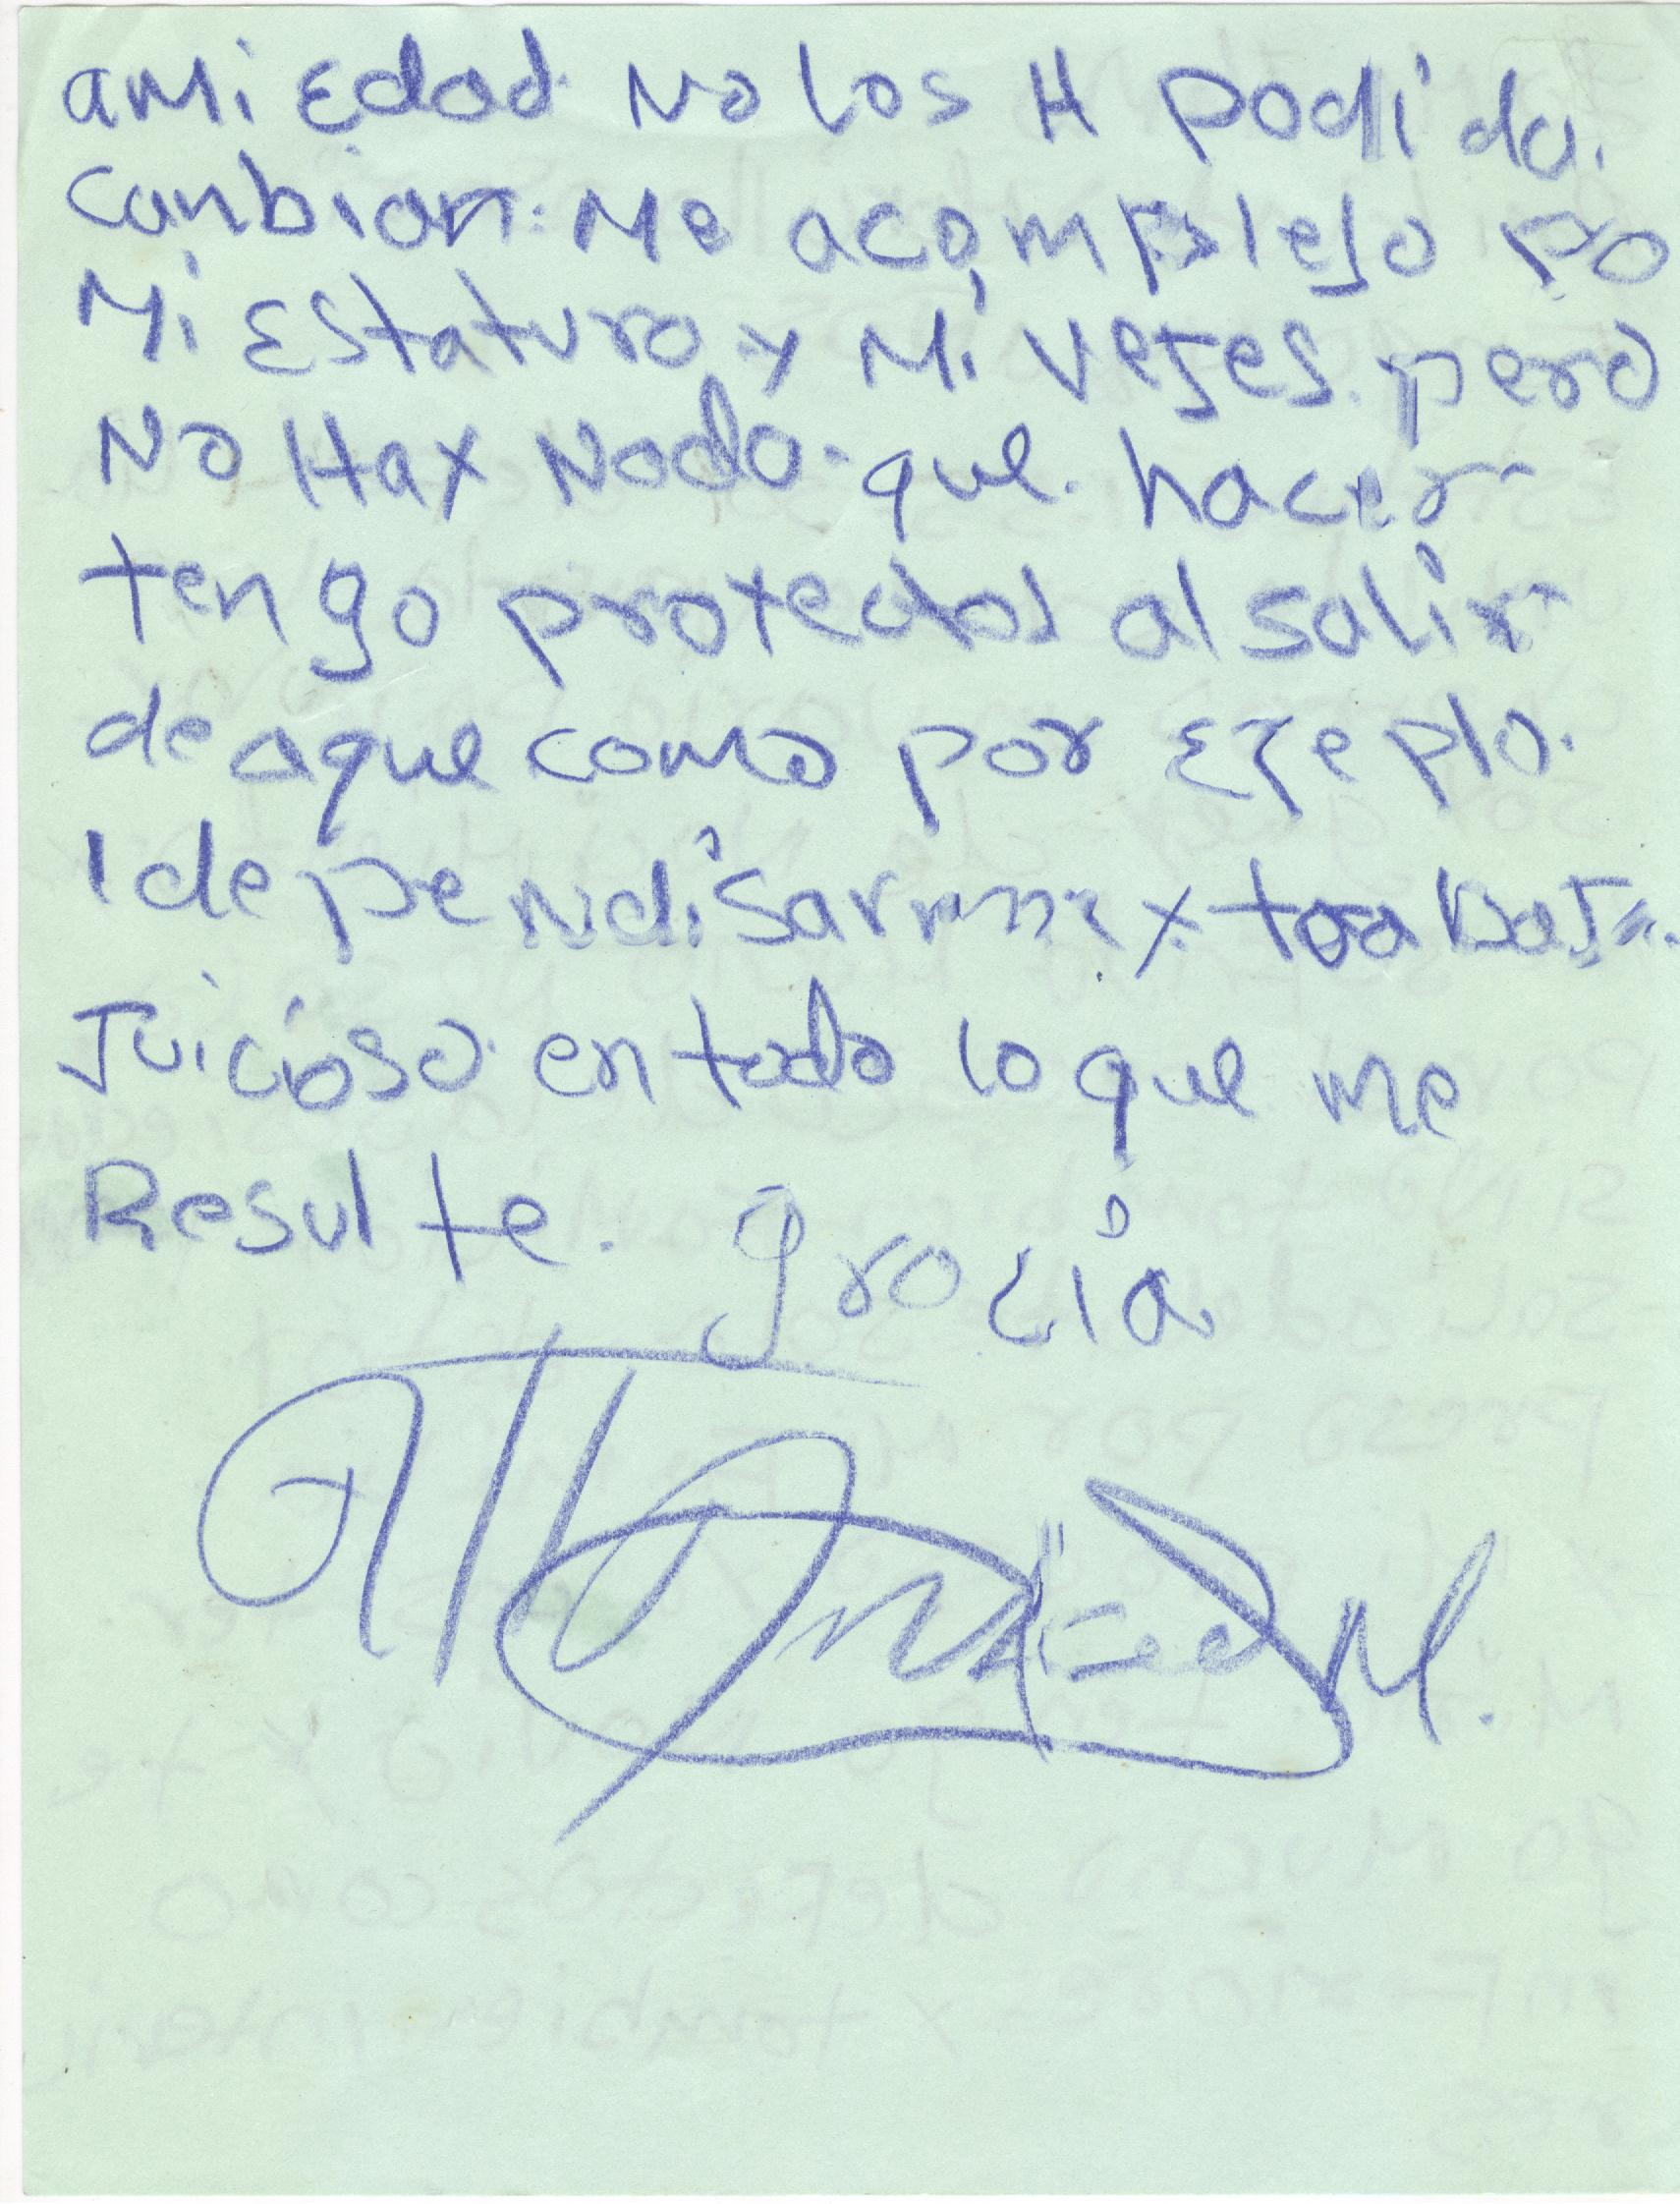 a mi Edad. No los H podido.
Canbiar: Me acomplejo po
Mi Estatura y Mi vejes. pero
No Hay Nada. que. hacer
tengo protectos al salir
de aque como por Ejeplo.
Idependisarme y. trabaja.
Juicioso. en todo lo que me
Resulte. gracia